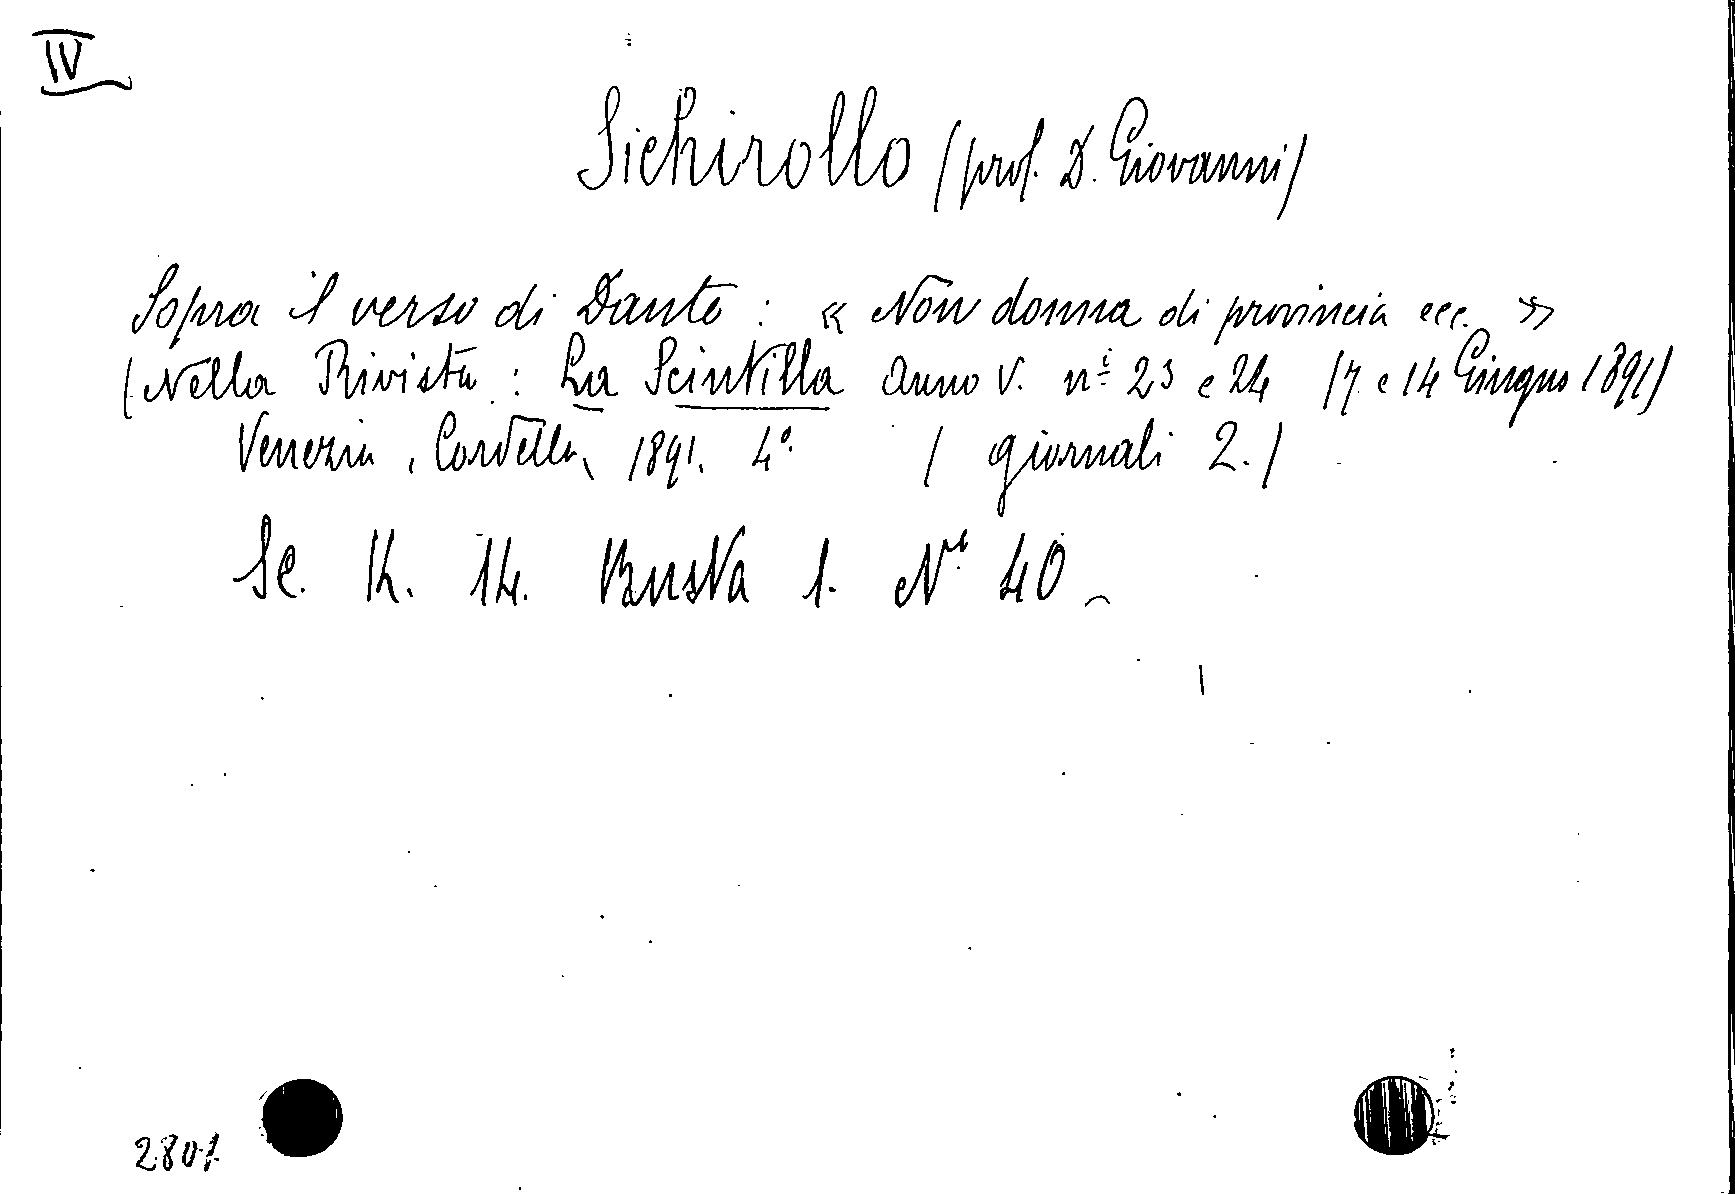 IV
Sichirollo (prof. D. Giovanni)
Sopra il verso di Dante : « Non donna di provincia ecc. »
(Nella Rivista : La Scintilla Anno V. nⁱ 23 e 24 (7 e 14 Giugno 1891)
Venezia, Cordella, 1891. 4º. ( giornali 2. )
Sc. K. 14. Busta 1. Nº 40
2801